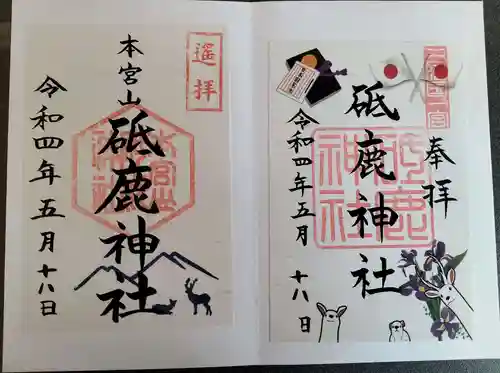 奉拝
三河國一宮
砥鹿神社
砥鹿神社
令和四年五月十八日
遥拝
本宮山
砥鹿神社
令和四年五月十八日